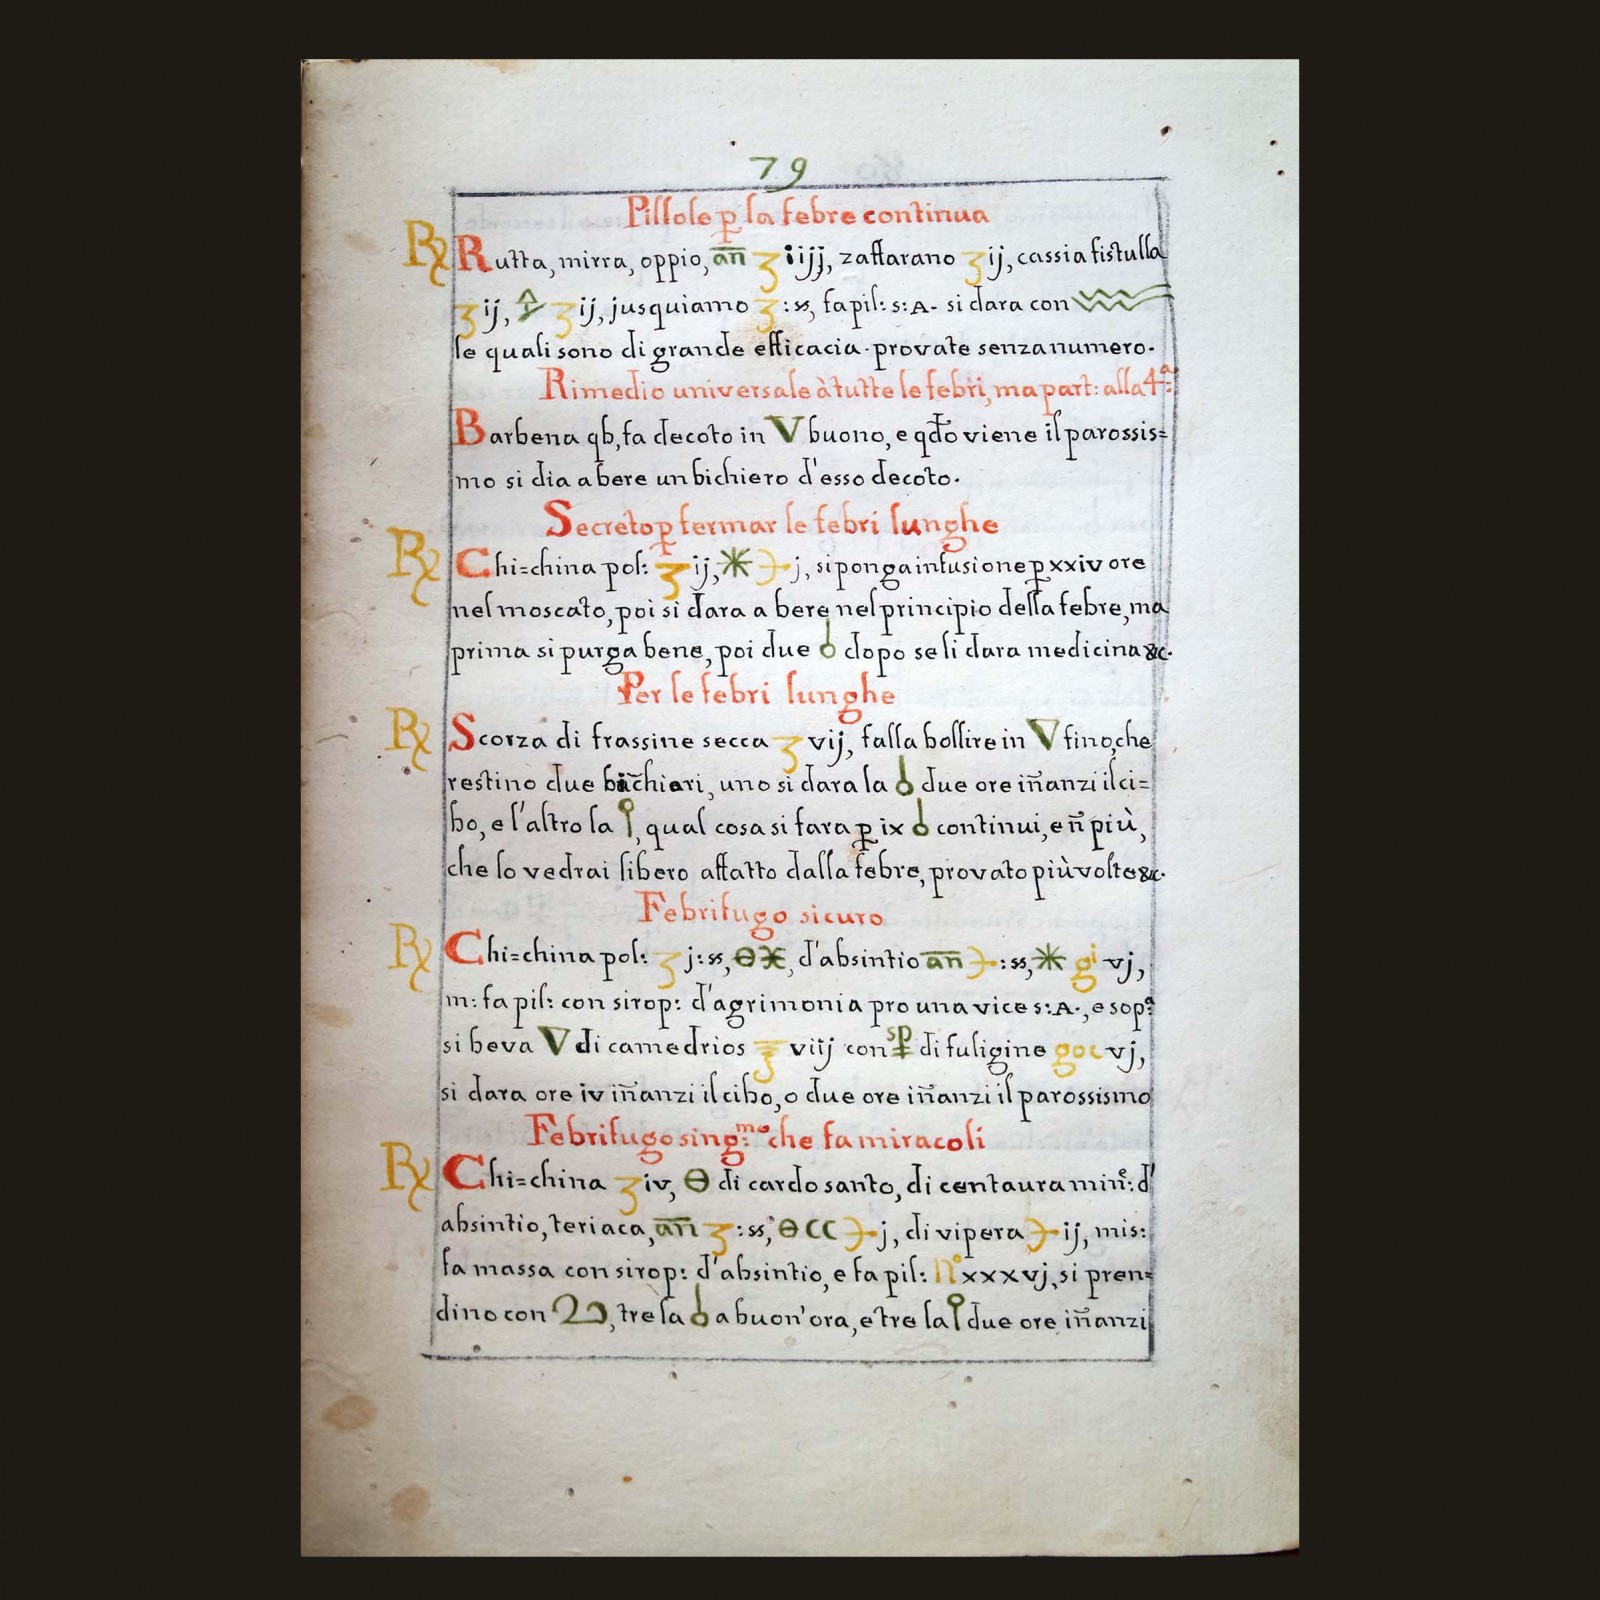 79
Pillole p la febre continua
℞ Rutta, mirra, oppio, an̄ ʒ iijj, zaffarano ʒ ij, cassia fistulla
ʒ ij, ʒ ij, jusquiamo ʒ : ss, fa pil: s: A. si dara con
le quali sono di grande efficacia. provate senza numero.
Rimedio universale à tutte le febri, ma part: alla 4.ª
Barbena qb, fa decoto in V buono, e qdo viene il parossis=
mo si dia a bere un bichiero d'esso decoto.
Secreto p fermar le febri lunghe
℞ Chi=china pol: ʒ ij, ✳ ℈ j, si ponga infusione p xxiv ore
nel moscato, poi si dara a bere nel principio della febre, ma
prima si purga bene, poi due dopo se li dara medicina &c.
Per le febri lunghe
℞ Scorza di frassine secca ʒ vij, falla bollire in V fino, che
restino due bichieri, uno si dara la due ore iñanzi il ci=
bo, e l'altro la , qual cosa si fara p ix continui, e ñ più,
che lo vedrai libero affatto dalla febre, provato più volte &c.
Febrifugo sicuro
℞ Chi=china pol: ʒ j: ss, Θ , d'absintio an̄ ℈ : ss, ✳ gi vj,
m: fa pil: con sirop: d'agrimonia pro una vice s: A., e sopª
si beva ∇ di camedrios ʒ viij con sp di fuligine goc vj,
si dara ore iv iñanzi il cibo, o due ore iñanzi il parossismo
Febrifugo sing:mo che fa miracoli
℞ Chi=china ʒ iv, Θ di cardo santo, di centaura miñ: d'
absintio, teriaca, an̄ ʒ : ss, Θ CC ℈ j, di vipera ℈ ij, mis:
fa massa con sirop: d'absintio, e fa pil: N° xxxvj, si pren=
dino con , tre la a buon'ora, e tre la due ore iñanzi